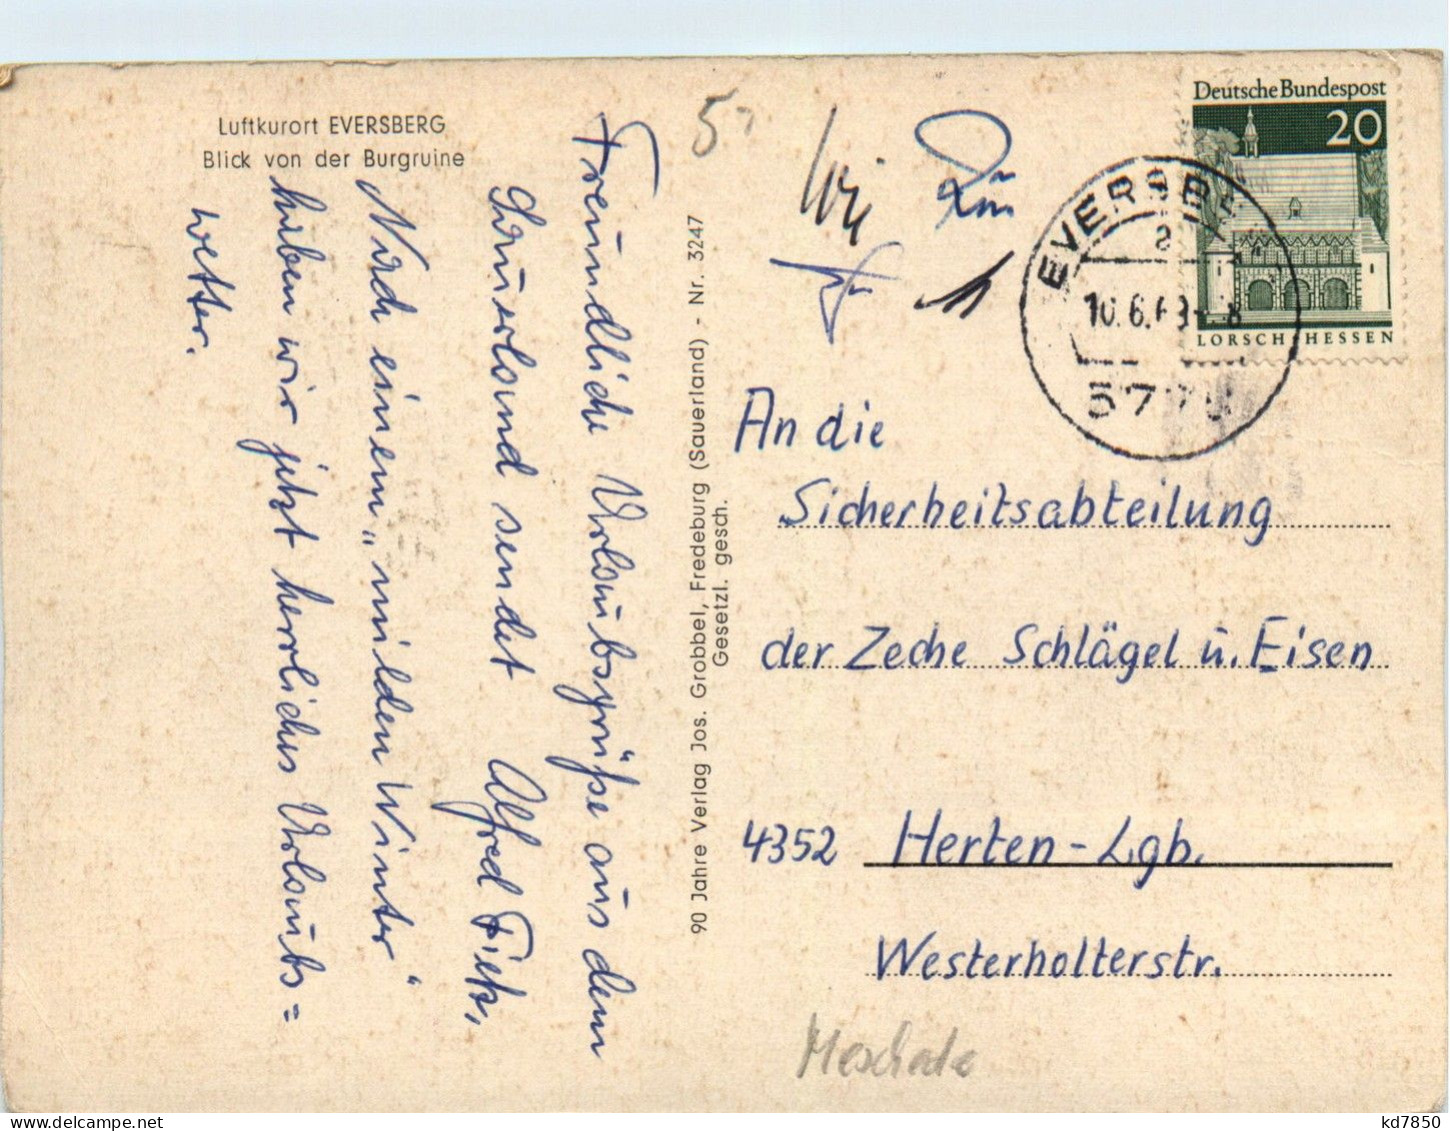 Luftkurort EVERSBERG
Blick von der Burgruine
Freundliche Urlaubsgrüße aus dem
Sauerland sendet Alfred Fiek,
Nach einem „milden Winter“
haben wir jetzt herrliches Urlaubs=
wetter.
90 Jahre Verlag Jos. Grobbel, Fredeburg (Sauerland) - Nr. 3247
Gesetzl. gesch.
Deutsche Bundespost
20
LORSCH HESSEN
10.6.69
5770
An die
Sicherheitsabteilung
der Zeche Schlägel u. Eisen
4352 Herten-Lgb.
Westerholterstr.
kd7850